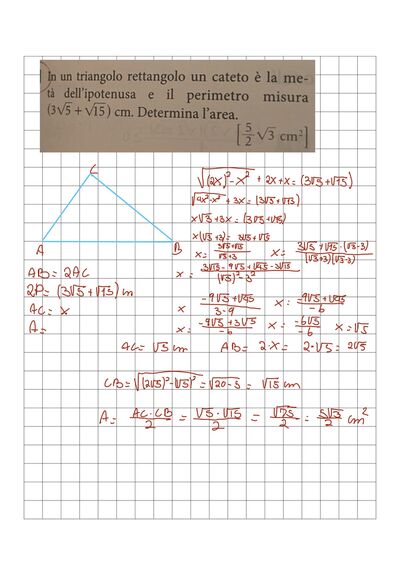 In un triangolo rettangolo un cateto è la me-
tà dell'ipotenusa e il perimetro misura
(3√5 + √15) cm. Determina l'area.
[5/2 √3 cm²]
C
A B
AB = 2AC
2P = (3√5 + √15) m
AC = x
A =
√((2x)² - x²) + 2x + x = (3√5 + √15)
√(4x² - x²) + 3x = (3√5 + √15)
x√3 + 3x = (3√5 + √15)
x(√3 + 3) = 3√5 + √15
x = (3√5 + √15)/(√3 + 3) x = (3√5 + √15 · (√3 - 3))/((√3 + 3)(√3 - 3))
x = (3√15 - 9√5 + √45 - 3√15)/((√3)² - 3²)
x (-9√5 + √45)/(3 - 9) x = (-9√5 + √45)/(-6)
x = (-9√5 + 3√5)/(-6) x = (-6√5)/(-6) x = √5
AC = √5 cm AB = 2 · x = 2 · √5 = 2√5
CB = √((2√5)² - (√5)²) = √(20 - 5) = √15 cm
A = (AC · CB)/2 = (√5 · √15)/2 = √75/2 = 5√3/2 cm²